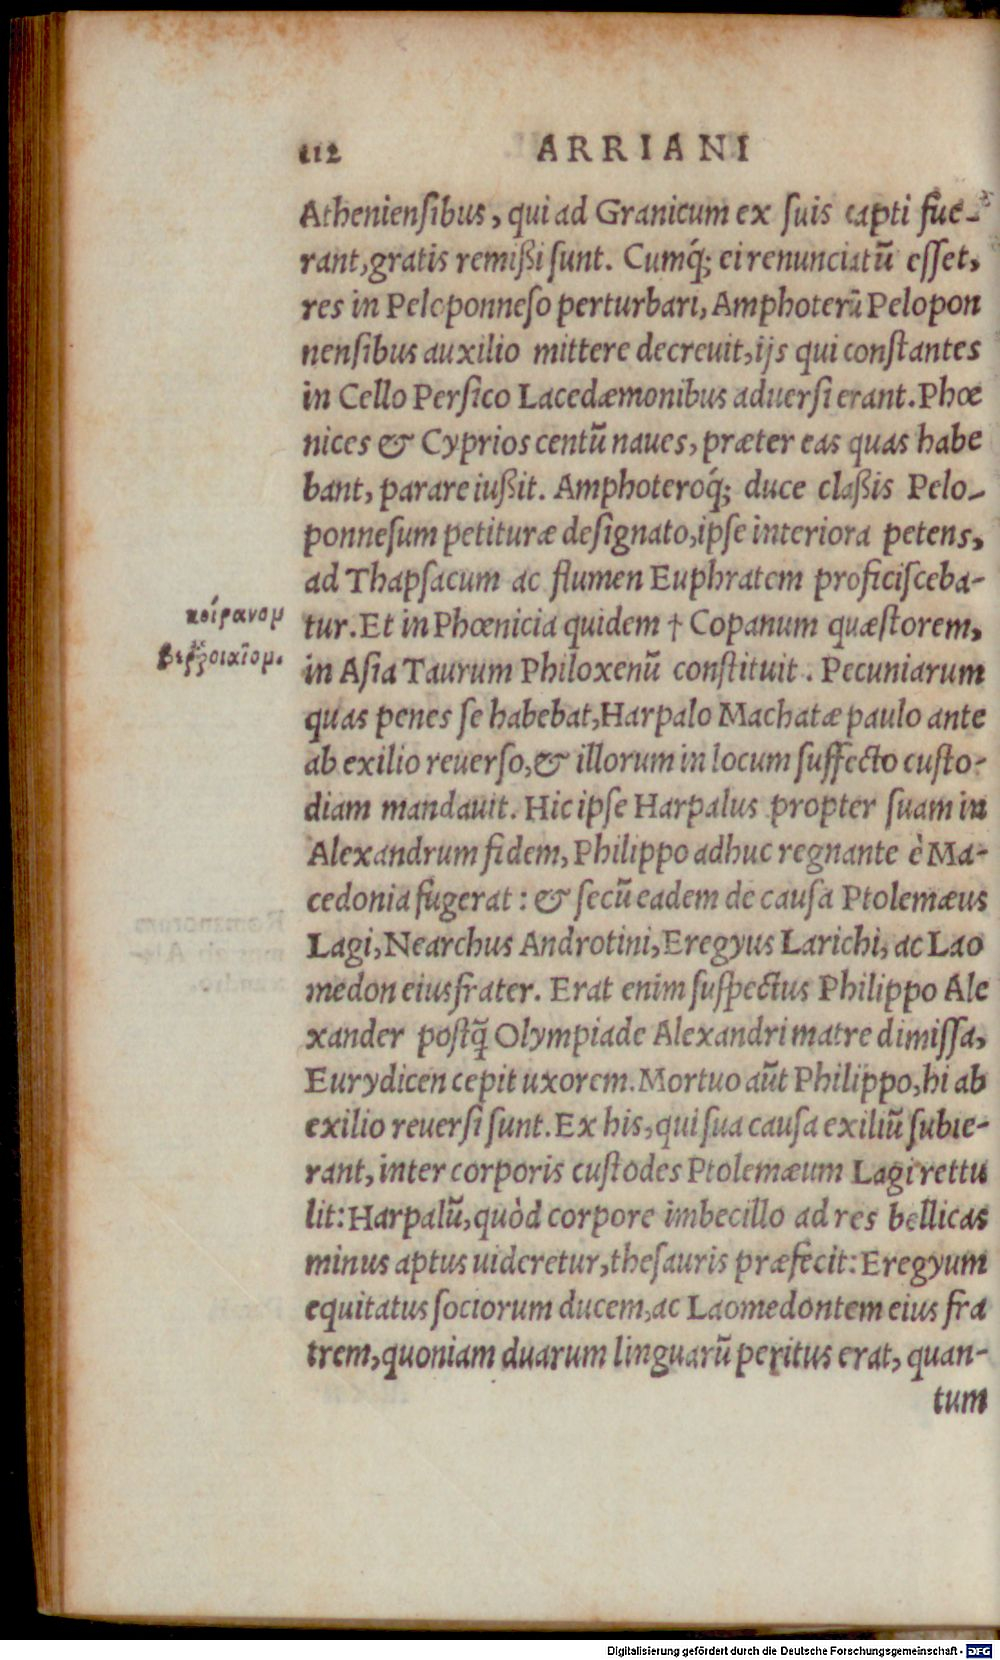 112 ARRIANI
Atheniensibus, qui ad Granicum ex suis capti fue-
rant, gratis remißi sunt. Cumq́; ei renunciatū esset,
res in Peloponneso perturbari, Amphoterū Pelopon
nensibus auxilio mittere decreuit, ijs qui constantes
in Cello Persico Lacedæmonibus aduersi erant. Phœ
nices & Cyprios centū naues, præter eas quas habe
bant, parare iußit. Amphoteroq́; duce claßis Pelo-
ponnesum petituræ designato, ipse interiora petens,
ad Thapsacum ac flumen Euphratem proficisceba-
κοίρανομ
tur. Et in Phœnicia quidem † Copanum quæstorem,
in Asia Taurum Philoxenū constituit. Pecuniarum
quas penes se habebat, Harpalo Machatæ paulo ante
ab exilio reuerso, & illorum in locum suffecto custo-
diam mandauit. Hic ipse Harpalus propter suam in
Alexandrum fidem, Philippo adhuc regnante è Ma-
cedonia fugerat: & secū eadem de causa Ptolemæus
Lagi, Nearchus Androtini, Eregyus Larichi, ac Lao
medon eius frater. Erat enim suspectus Philippo Ale
xander postq̄ Olympiade Alexandri matre dimissa,
Eurydicen cepit uxorem. Mortuo aūt Philippo, hi ab
exilio reuersi sunt. Ex his, qui sua causa exiliū subie-
rant, inter corporis custodes Ptolemæum Lagi rettu
lit: Harpalū, quòd corpore imbecillo ad res bellicas
minus aptus uideretur, thesauris præfecit: Eregyum
equitatus sociorum ducem, ac Laomedontem eius fra
trem, quoniam duarum linguarū peritus erat, quan-
tum
Digitalisierung gefördert durch die Deutsche Forschungsgemeinschaft - DFG